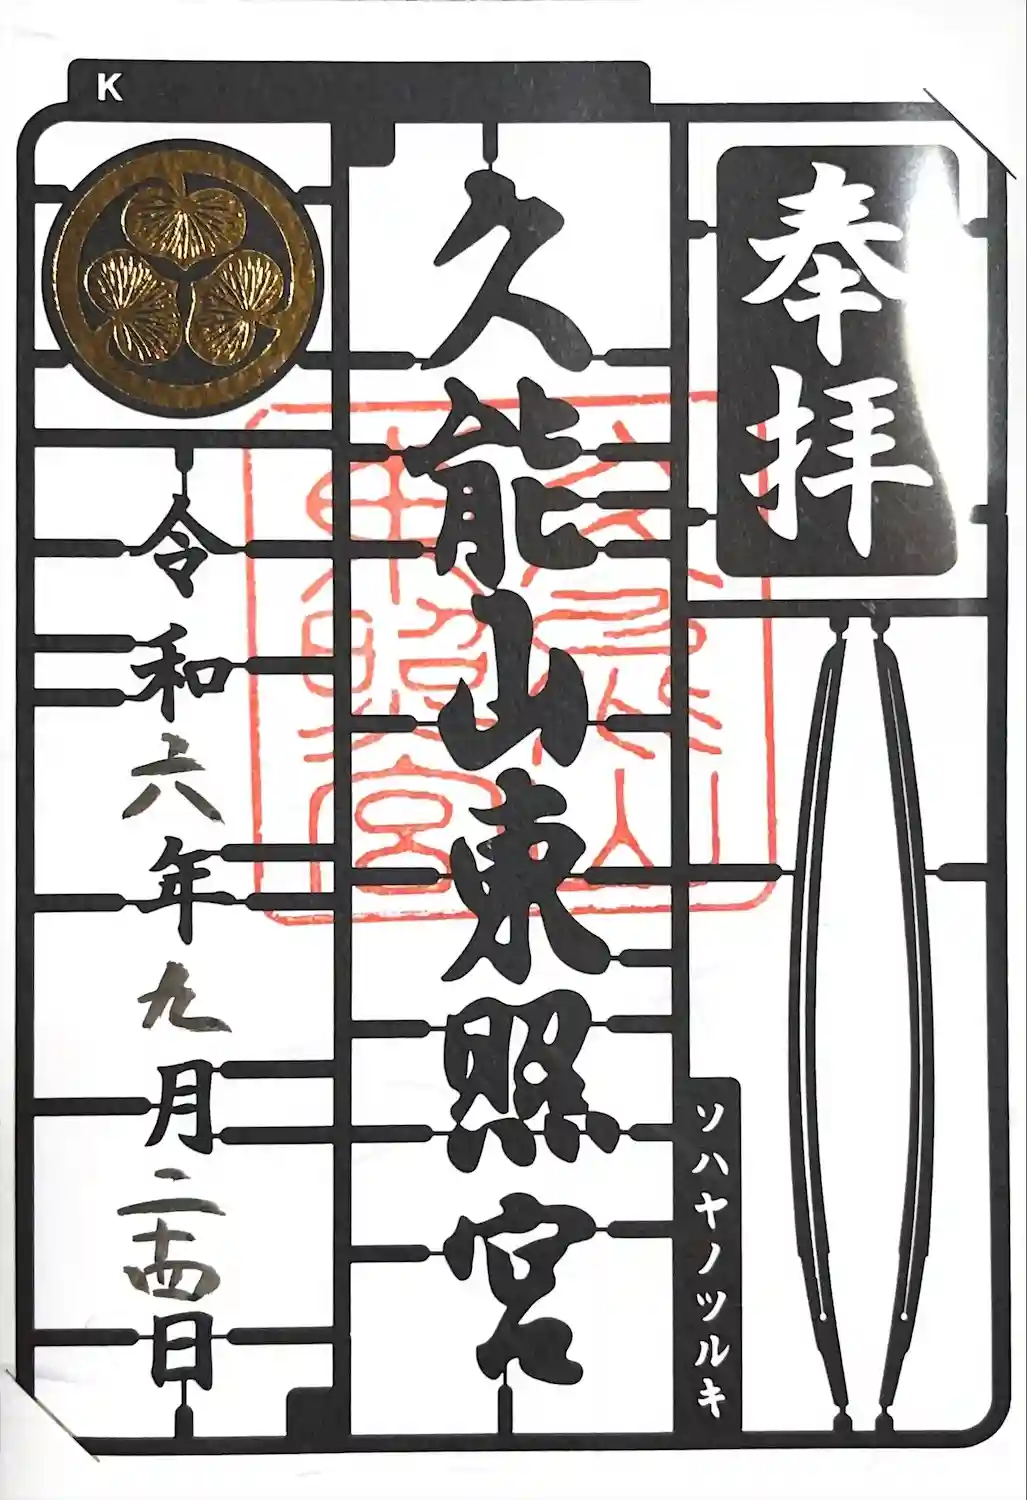 K
奉拝
久能山東照宮
ソハヤノツルキ
令和六年九月二十四日
久能山東照宮